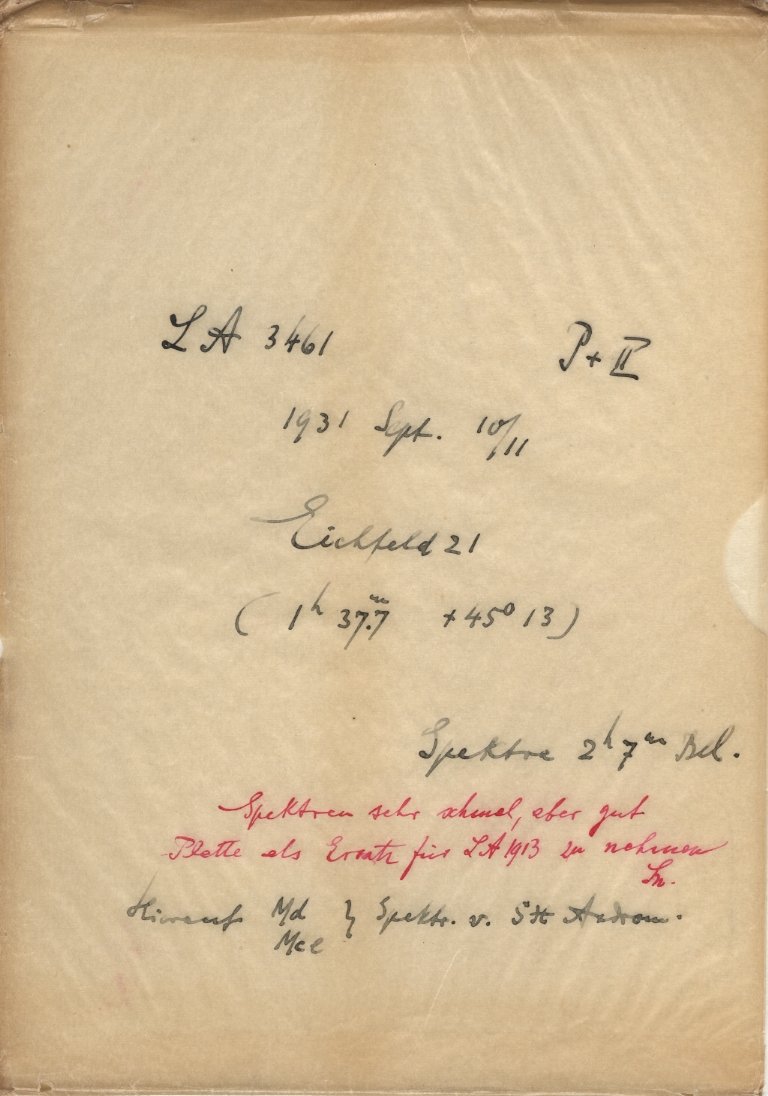 LA 3461 P + II
1931 Sept. 10/11
Eichfeld 21
( 1h 37.m7 +45° 13 )
Spektra 2h 7m Bel.
Spektren sehr schmal, aber gut
Platte als Ersatz für LA 1913 zu nehmen
Hierauf Md } Spektr. v. Androm.